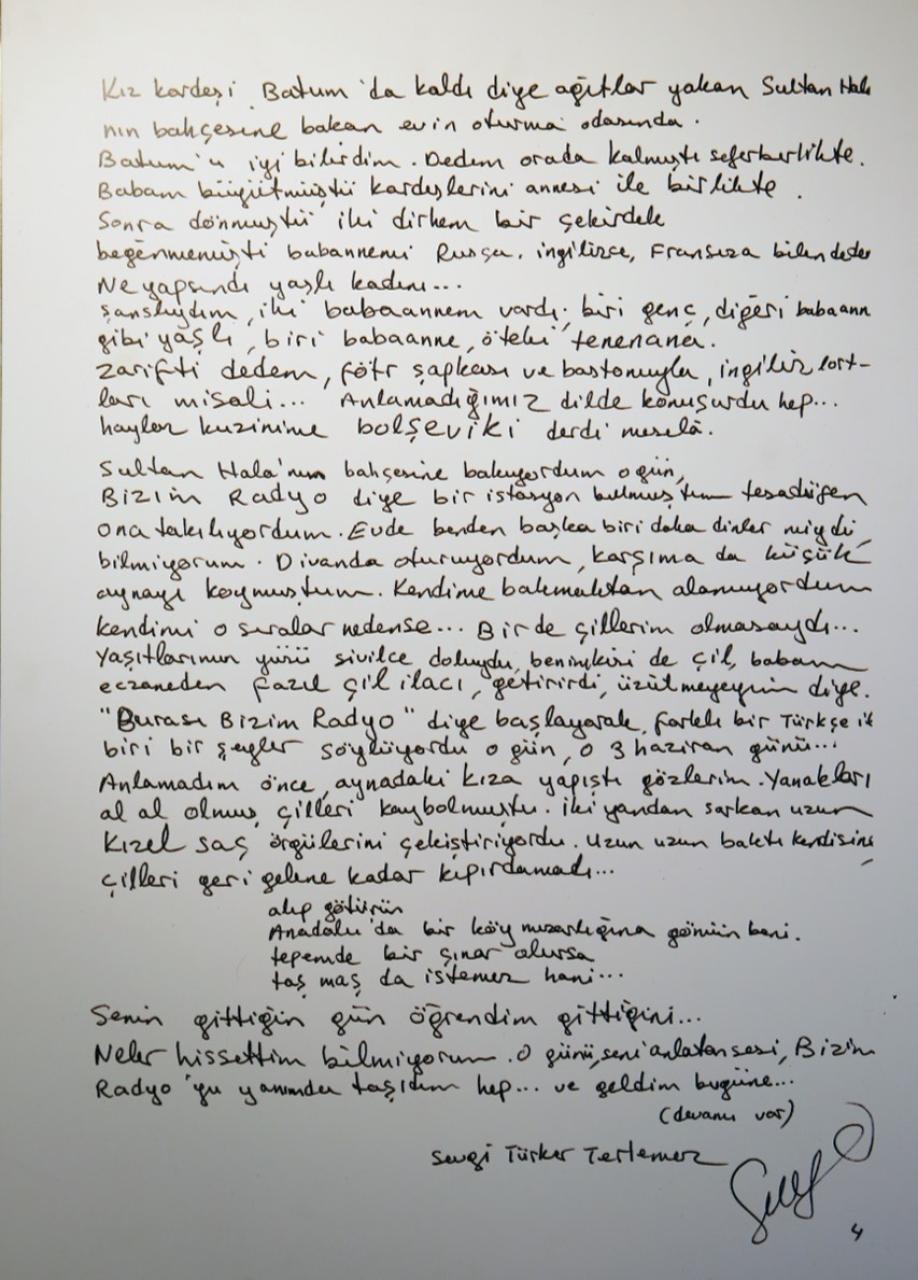 Kız kardeşi Batum'da kaldı diye ağıtlar yakan Sultan Hala
nın bahçesine bakan evin oturma odasında.
Batum'u iyi bilirdim. Dedem orada kalmıştı seferberlikte.
Babam büyütmüştü kardeşlerini annesi ile birlikte.
Sonra dönmüştü iki dirhem bir çekirdek
beğenmemişti babannemi Rusça, ingilizce, Fransızca bilen dedem
Ne yapsındı yaşlı kadını...
şanslıydım, iki babaannem vardı; biri genç, diğeri babaann
gibi yaşlı, biri babaanne, öteki
zarifti dedem, fötr şapkası ve bastonuyla, ingiliz lort-
ları misali... Anlamadığımız dilde konuşurdu hep...
haylaz kuzinime bolşeviki derdi meselâ.
Sultan Hala'nın bahçesine bakıyordum o gün,
Bizim Radyo diye bir istasyon bulmuştum tesadüfen
ona takılıyordum. Evde benden başka biri daha dinler miydi
bilmiyorum. Divanda oturuyordum, karşıma da küçük
aynayı koymuştum. Kendime bakmaktan alamıyordum
kendimi o sıralar nedense... Bir de çillerim olmasaydı...
Yaşıtlarımın yüzü sivilce doluydu, benimkisi de çil, babam
eczaneden fazıl çil ilacı, getirirdi, üzülmeyeyim diye.
"Burası Bizim Radyo" diye başlayarak, farklı bir Türkçe ile
biri bir şeyler söylüyordu o gün, o 3 haziran günü...
Anlamadım önce, aynadaki kıza yapıştı gözlerim. Yanakları
al al olmuş, çilleri kaybolmuştu. İki yandan sarkan uzun
kızıl saç örgülerini çekiştiriyordu. Uzun uzun baktı kendisine
çilleri geri gelene kadar kıpırdamadı...
alıp götürün
Anadolu'da bir köy mezarlığına gömün beni.
tepemde bir çınar olursa
taş maş da istemez hani...
Senin gittiğin gün öğrendim gittiğini...
Neler hissettim bilmiyorum. O günü, seni anlatan sesi, Bizim
Radyo'yu yanımda taşıdım hep... ve geldim bugüne...
(devamı var)
Sevgi Türker Terlemez
4